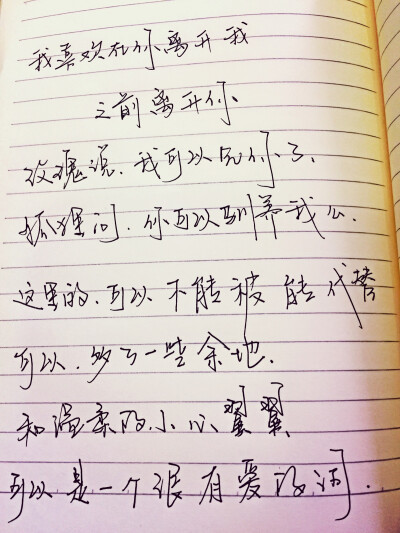 我喜欢在你离开我
之前离开你、
玫瑰说.我可以完你了.
狐狸问.你可以驯养我么.
这里的.可以不能被能代替
可以.够了一些余地.
和温柔的小心翼翼
可以是一个很有爱的词.